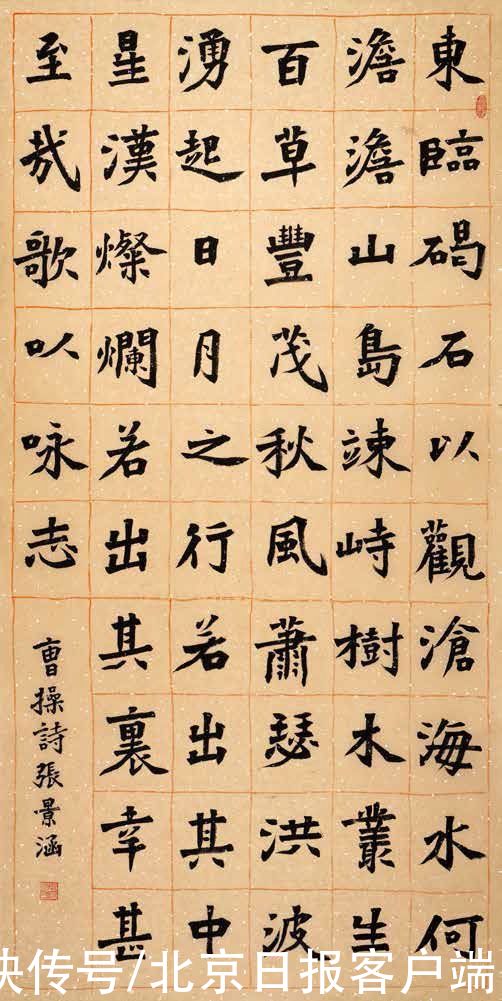 東臨碣石以觀滄海水何
澹澹山島竦峙樹木叢生
百草豐茂秋風蕭瑟洪波
湧起日月之行若出其中
星漢燦爛若出其裏幸甚
至哉歌以咏志
曹操詩張景涵
快传号/北京日报客户端